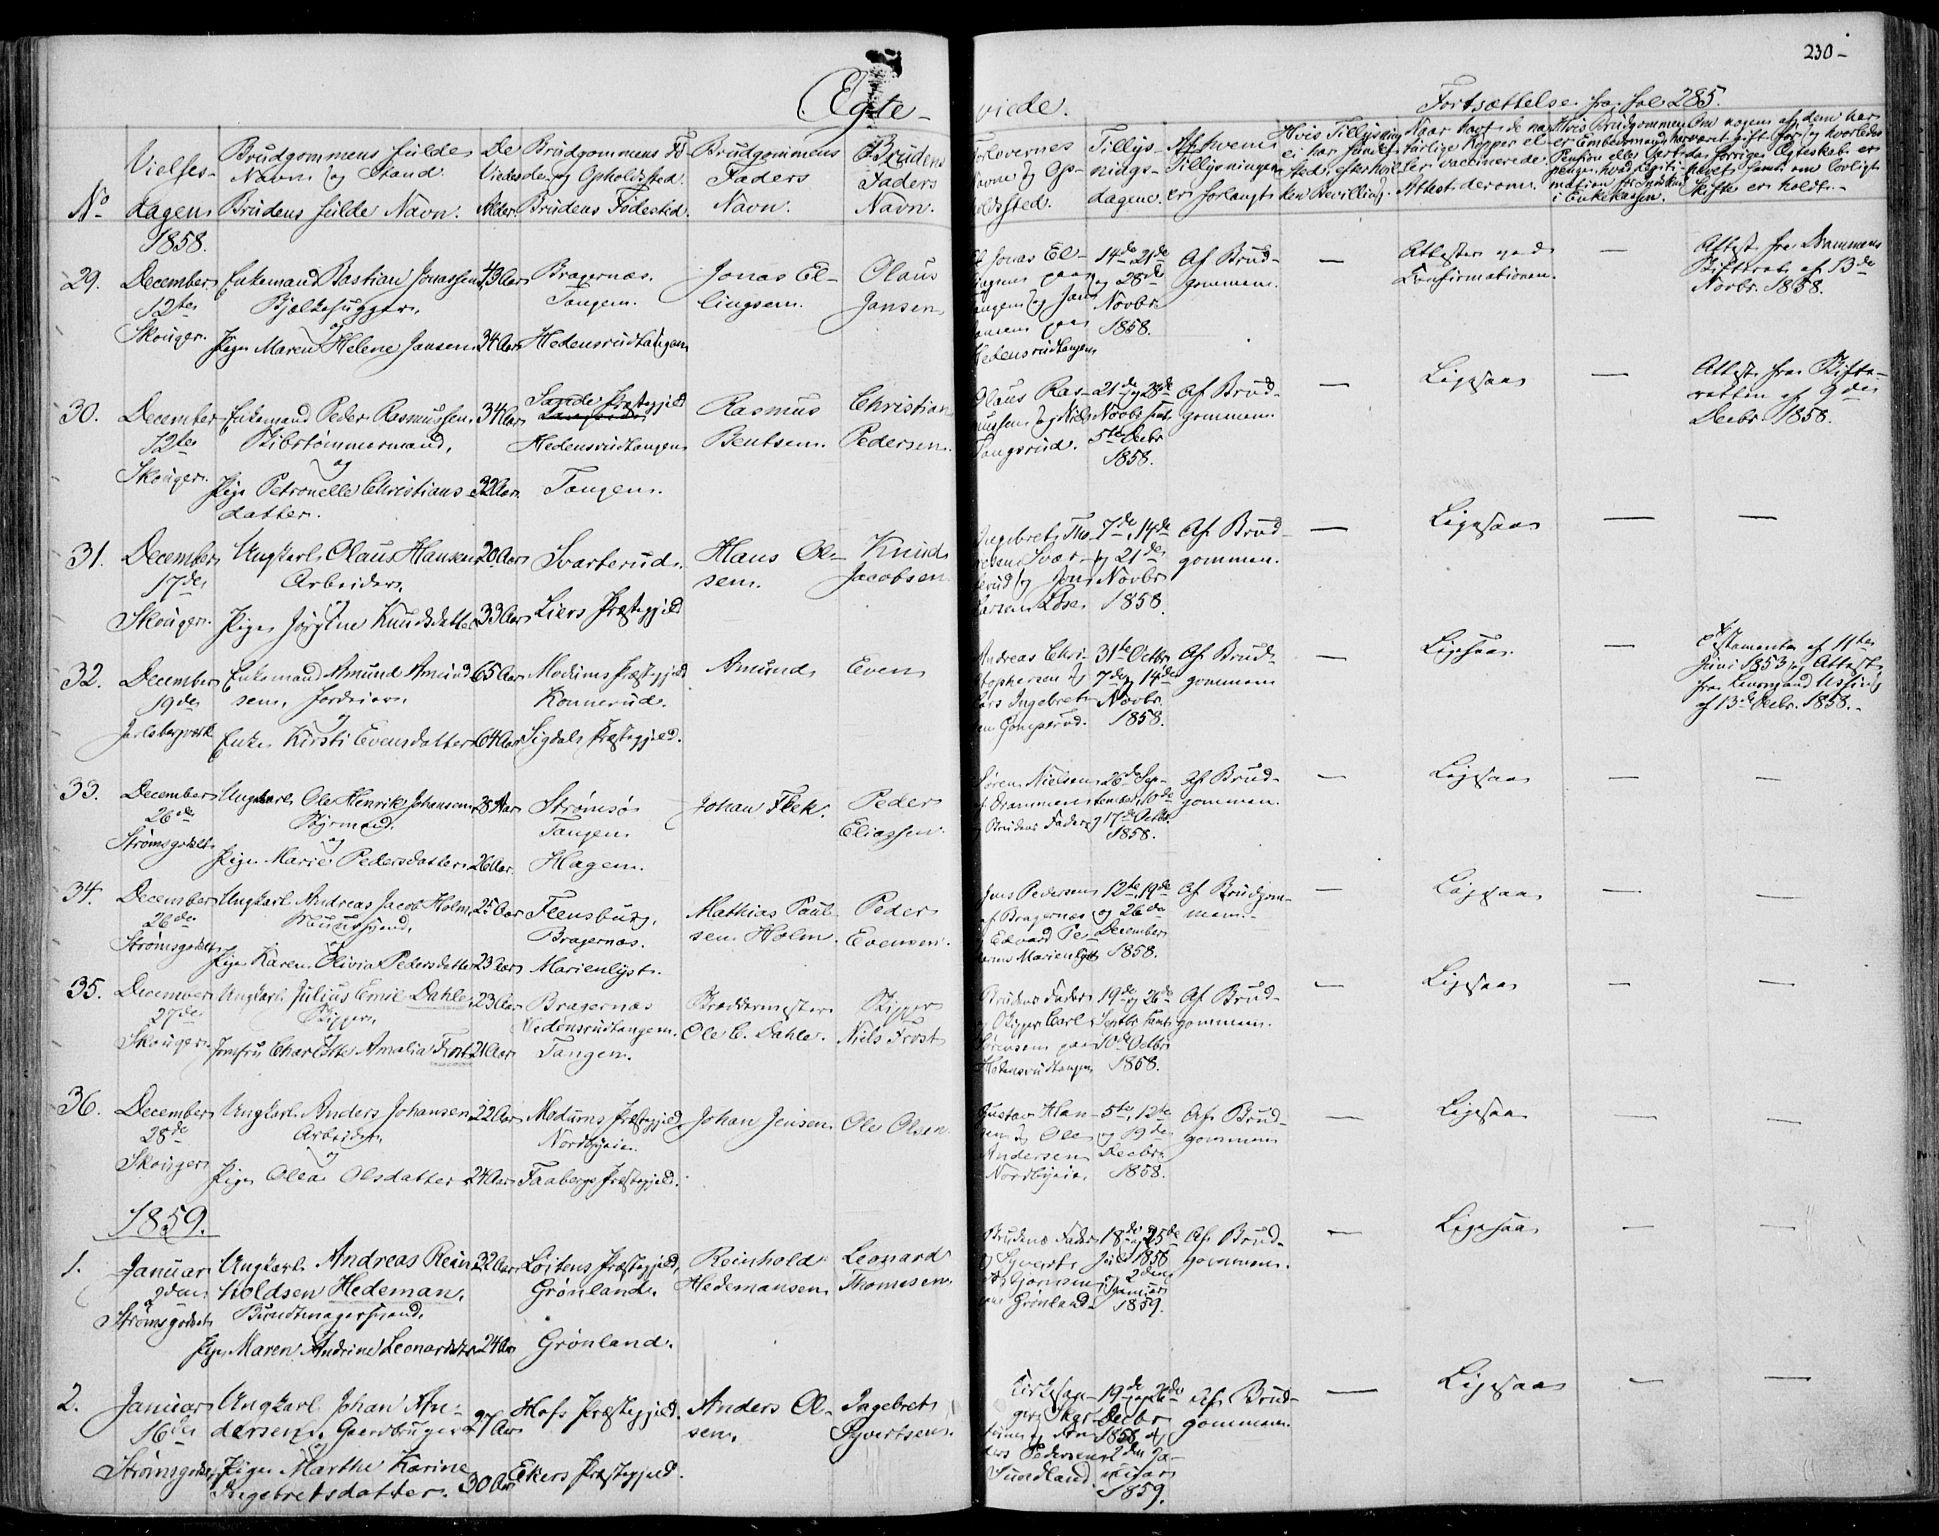 230-
Ægte-
viede.
Fortsættelse fra fol 285.
No
Vielses-
dagen
Brudgommens fulde
Navn og Stand
Brudens fulde Navn.
De
Viedes
Alder
Brudgommens Fø
de og Opholdsted.
Brudens Fødested.
Brudgommens
Faders
Navn.
Brudens
Faders
Navn.
Forlovernes
Navne og Op-
holdssted.
Tillys-
nings-
dagene.
Af hvem
Tillysningen
er forlangt
Hvis Tillysning
ei har fundet
Sted, efter hvil-
den Bevilling.
Naar havt de na-
turlige Kopper el-
ler vaccinerede.
Attest derom.
Hvis Brudgommen
er Embedsmand
i Enkekassen.
Om nogen af dem har
været gift før og hvorledes
det forrige Ægteskab er
hævet samt om lovligt
Skifte er holdt.
1858.
29.
December
12te
Skouger.
Enkemand Bastian Jonassen
Bjelkehugger,
og
Pige Maren Helene Jansen
43 Aar
34 Aar
Bragernæs.
Tangen.
Hedensrudtangen
Jonas El-
lingsen.
Olaus
Jansen
Jonas El-
lingsen paa
Tangen og Jans
Jansen paa
Hedensrudtangen
14de 21de
og 28de
Novbr.
1858.
Af Brud-
gommen.
—
Attester ved
Confirmationen.
—
Attest fra Drammens
Skifteret af 13de
Novbr. 1858.
30.
December
12te
Skouger.
Enkemand Peder Rasmussen
Skibstømmermand,
og
Pige Petronelle Christians
datter.
34 Aar
32 Aar
Sande Præstegjeld
Hedensrudtangen
Tangen.
Rasmus
Bentsen.
Christian
Pedersen.
Olaus Ras-
mussen og Niels
Tangsrud.
21de og 28de
Novbr samt
5te Decbr
1858.
Af Brud-
gommen
—
Ligesaa
—
Attest fra Skifte-
retten af 9de
Decbr. 1858.
31.
December
17de
Skouger.
Ungkarl Olaus Hansen
Arbeider.
og
Pige Jørgine Knudsdatter
20 Aar
33 Aar
Svarterud.
Liers Præstegjeld
Hans Ol-
sen.
Knud
Jacobsen
Ingebret Tho-
resen Svar-
terud og Jon
Larsen Løse.
7de, 14de
og 21de
Novbr
1858.
Af Brud-
gommen.
—
Ligesaa
—
—
32.
December
19de
Jarlsbergværk
Enkemand Amund Amund
sen, Jordeier.
og
Enke Kirsti Evensdatter
65 Aar
64 Aar
Modums Præstegjeld
Konnerud.
Sigdals Præstegjeld.
Amund
Even
Andreas Chri-
stophersen og
Lars Ingebret-
sen Gomperud.
31te Octbr
7de og 14de
Novbr.
1858.
Af Brud-
gommen
—
Ligesaa.
—
Testamente af 11te
Juni 1853 og Attest
fra Lensmand Ussing
af 13de Decbr. 1858.-
33.
December
26de
Strømsgodset
Ungkarl Ole Henrik Johansen
Styrmand.
og
Pige Marie Pedersdatter
28 Aar
26 Aar.
Strømsø
Tangen.
Hagen.
Johan Flek.
Peder
Eliassen
Søren Nielsen
af Drammen
og Brudens Fader
26de Sep-
tember, 10de
og 17de Octbr
1858.
Af Brud-
gommen.
—
Ligesaa
—
—
34.
December
26de
Strømsgodset
Ungkarl Andreas Jacob Holm
og
Pige Karen Olivia Pedersdatter
25 Aar
23 Aar
Flensburg.
Bragernæs.
Marienlyst.
Mathias Paul-
sen Holm.
Peder
Evensen.
Jens Pedersen
af Bragernæs
og Edvard Pe-
dersens Marienlyst
12te, 19de
og 26de
December
1858.
Af Brudgom-
men.
—
Ligesaa
—
—
35.
December
27de
Skouger
Ungkarl Julius Emil Dahle
Skipper,
og
Jomfru Charlotte Amalia Frost
23 Aar
21 Aar
Bragernæs
Hedensrudtangen.
Tangen.
Snedkermester
Ole C. Dahle.
Skipper
Niels Frost
Brudens Fader
og Skipper Carl
Sørensen paa
Hedensrudtangen
19de og 26de
Septbr samt
10de Octbr
1858.
Af Brud-
gommen.
—
Ligesaa
—
—
36.
December
28de
Skouger
Ungkarl Anders Johansen
Arbeider
og
Pige Olea Olsdatter
22 Aar
24 Aar
Modums Præstegjeld
Nordbyeie.
Faabergs Præstegjeld.
Johan Jensen
Ole Olsen
Gustav Han-
sen og Ole
Andersen
Nordbyeie,
5te, 12te
og 19de
Decbr
1858.
Af Brud-
gommen
—
Ligesaa
—
—
1859.
1.
Januar
2den
Strømsgodset
Ungkarl Andreas Rein
holdsen Hedeman,
Buntmagersvend.
og
Pige Maren Andrine Leonardsdtr
32 Aar
24 Aar
Løitens Præstegjeld,
Grønland.
Grønland.
Reinhold
Hedemansen
Leonard
Thomesen
Brudens Fader
og Syvert
Gjønnsen
Grønland
18de og 25de
Juli 1858
og 2den
Januar
1859.
Af Brud-
gommen.
—
Ligesaa
—
—
2.
Januar
16de
Strømsgodset
Ungkarl Johan An-
dersen. Gaardbruger
og
Pige Marthe Karine
Ingebretsdatter.
27 Aar
30 Aar
Hofs Præstegjeld.
Ekers Præstegjeld.
Anders Ol-
sen.
Ingebret
Syvertsen.
Kirkesan-
ger
Pedersen
Sundland
19de og 26de
Decbr
1858 og
2den Ja-
nuar
1859.
Af Brud-
gommen.
—
Ligesaa
—
—